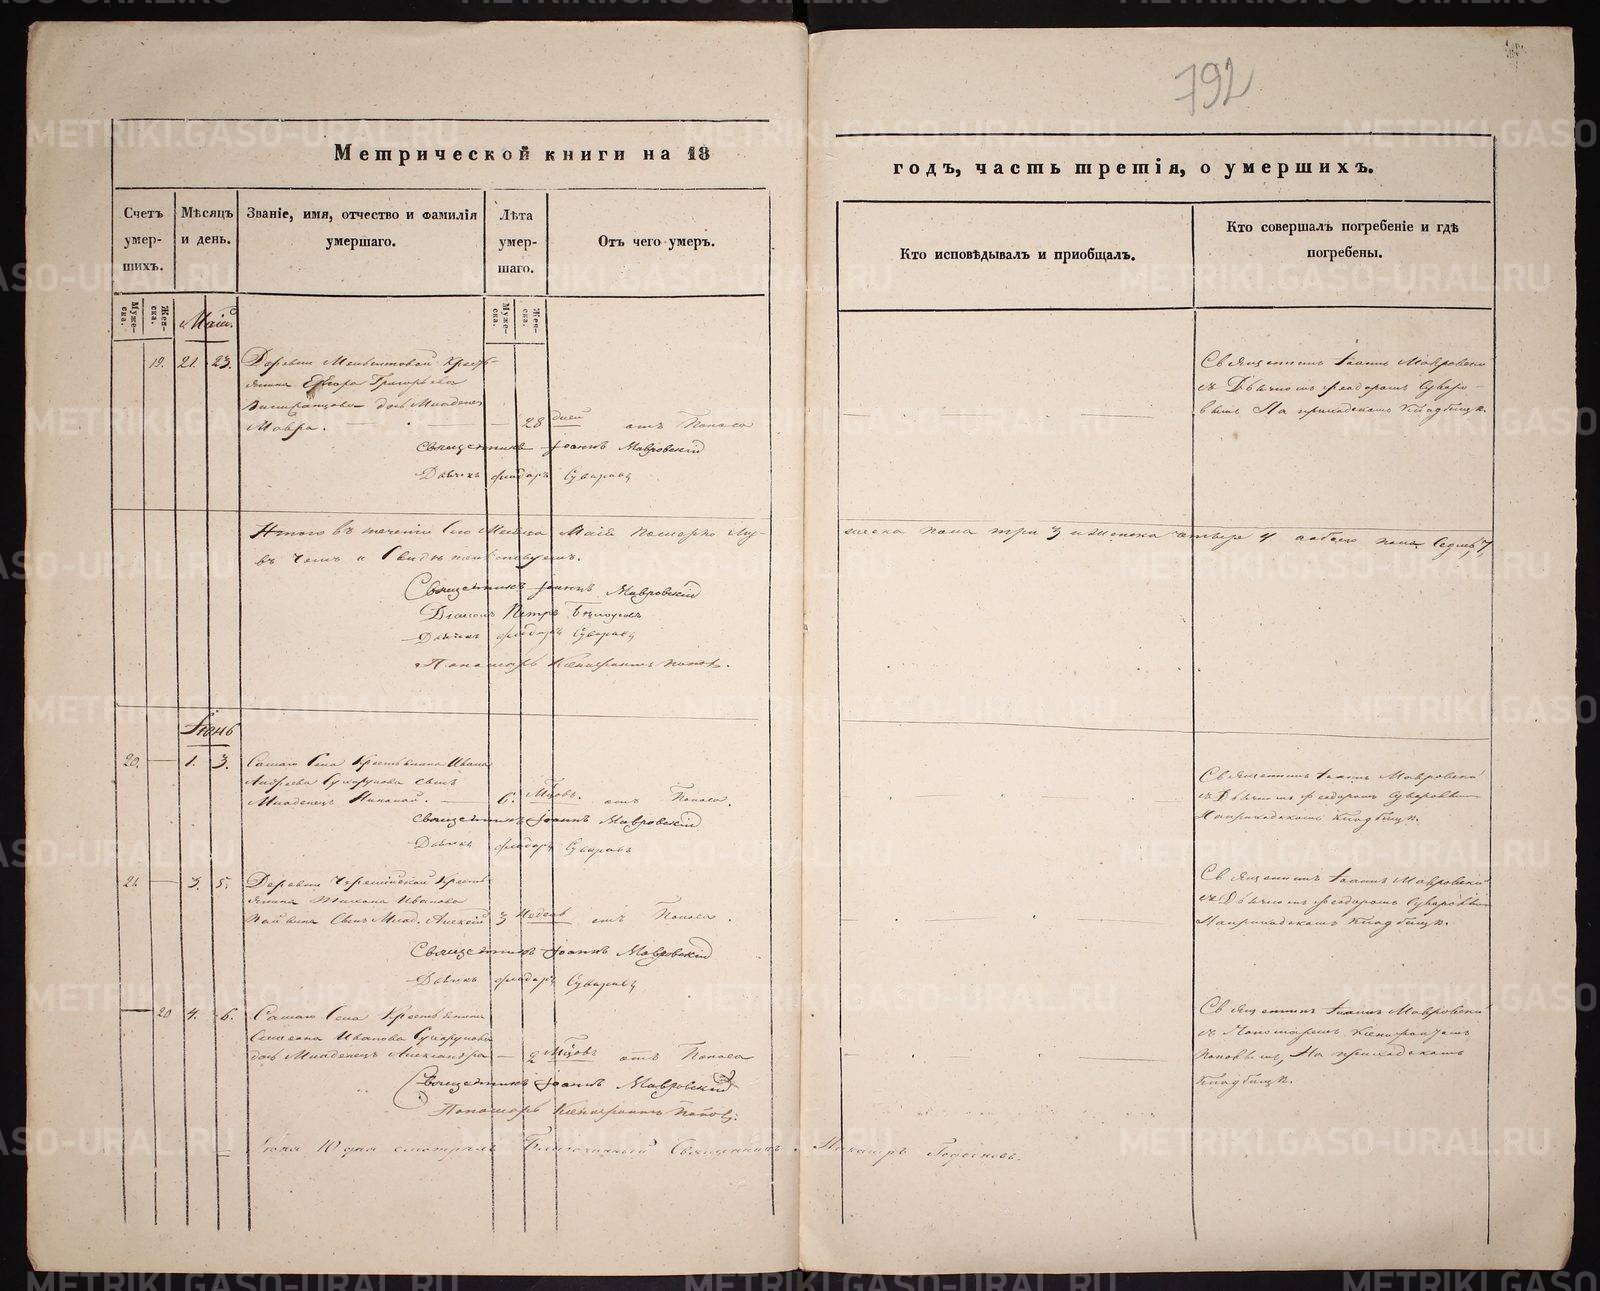 792
Метрической книги на 18
годъ, часть третія, о умершихъ.
Счетъ умер- шихъ.
Мѣсяцъ и день.
Званіе, имя, отчество и фамилія умершаго.
Лѣта умер- шаго.
Отъ чего умеръ.
Кто исповѣдывалъ и приобщалъ.
Кто совершалъ погребеніе и гдѣ погребены.
Муже- ска.
Жен- ска.
Муже- ска.
Жен- ска.
Маій.
19. 21. 23. Деревни Кресть-
янина Егора Григорьева
дочь Младенец
Мавра. 28 дней отъ Поноса
Священникъ Іоаннъ Мавровскій
Дьячекъ Феодоръ Суваровъ
Священникъ Іоаннъ Мавровскій
съ Дьячкомъ Феодоромъ Суваро-
вымъ На приходскомъ Кладбищѣ.
Итого въ теченіи сего Месяца Маія Померло Му-
жеска пола три 3 и женска четыре 4 а обоего пола Семь 7
въ чемъ и Свидѣтельствуемъ.
Священникъ Іоаннъ Мавровскій
Діаконъ Петръ
Дьячекъ Феодоръ Суваровъ
Пономарь Ксенофонтъ Поповъ.
Іюнь
20. 1. 3. Самаго Села Крестьянина Ивана
Андреева Сухорукова сынъ
Младенецъ Николай. 6. М҃цовъ. отъ Поноса.
Священникъ Іоаннъ Мавровскій
Дьячекъ Феодоръ Суваровъ
Священникъ Іоаннъ Мавровскій
съ Дьячкомъ Феодоромъ Суваровымъ
На приходскомъ Кладбищѣ.
21. 3. 5. Деревни Кресть-
янина Тихона Иванова
сынъ Млад. Алексѣй 3 Недель отъ Поноса.
Священникъ Іоаннъ Мавровскій
Дьячекъ Феодоръ Суваровъ
Священникъ Іоаннъ Мавровскій
съ Дьячкомъ Феодоромъ Суваровымъ
На приходскомъ Кладбищѣ.
20 4. 6. Самаго Села Крестьянина
Симеона Иванова Сухорукова
дочь Младенецъ Александра 2 М҃цовъ отъ Поноса
Священникъ Іоаннъ Мавровскій
Пономарь Ксенофонтъ Поповъ.
Священникъ Іоаннъ Мавровскій
съ Пономаремъ Ксенофонтомъ
Поповымъ, На приходскомъ
Кладбищѣ.
Іюня 10 дня смотрелъ Благочинный Священникъ
METRIKI.GASO-URAL.RU